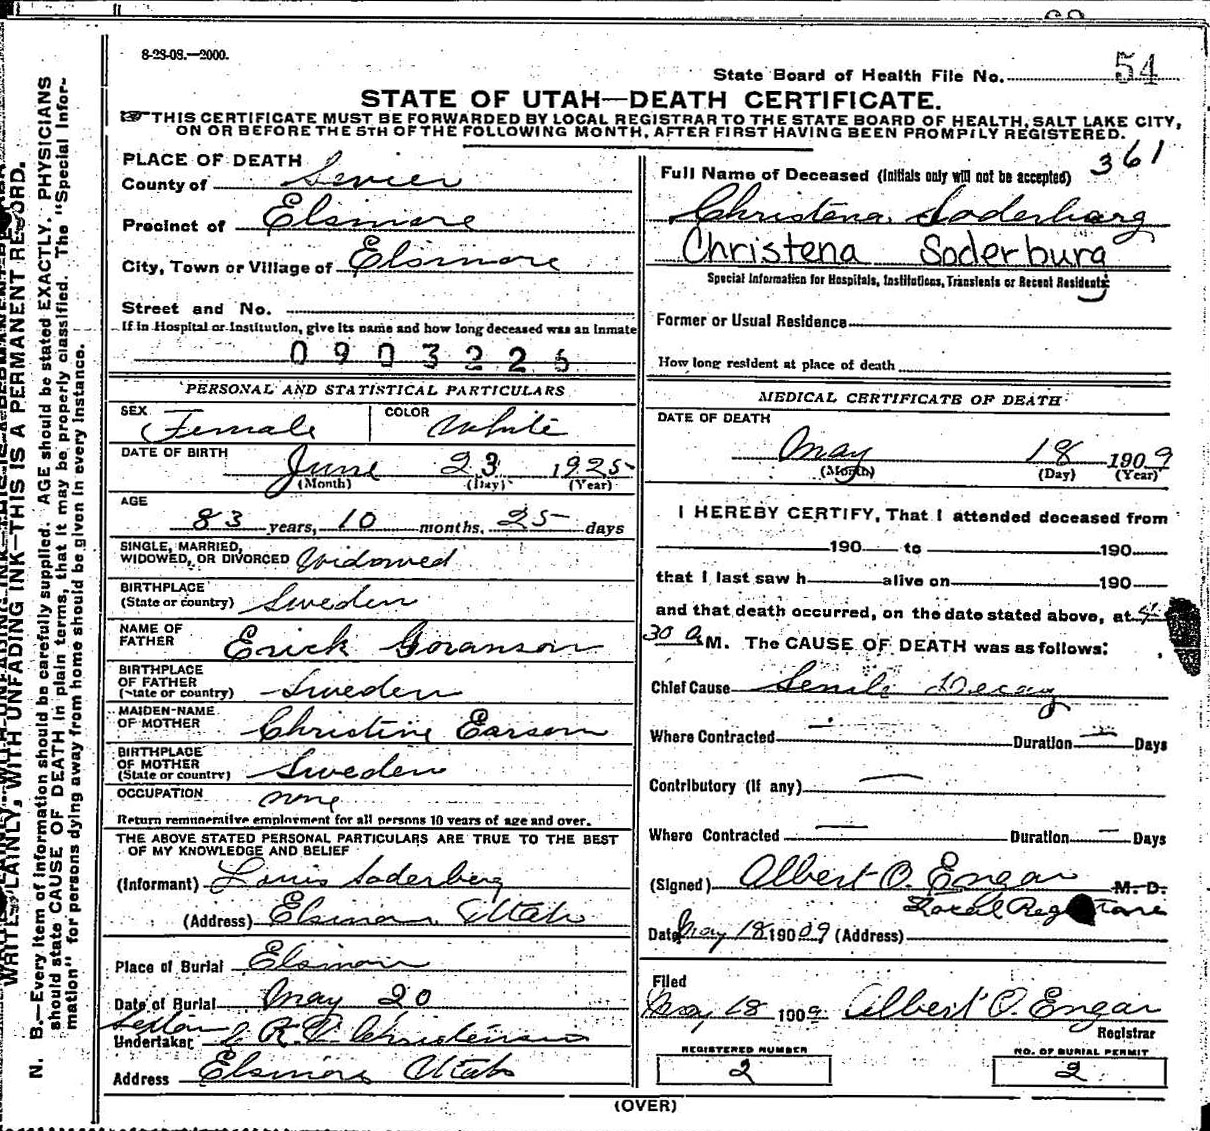 8-28-08.—2000.
State Board of Health File No. 54
STATE OF UTAH—DEATH CERTIFICATE.
THIS CERTIFICATE MUST BE FORWARDED BY LOCAL REGISTRAR TO THE STATE BOARD OF HEALTH, SALT LAKE CITY,
ON OR BEFORE THE 5TH OF THE FOLLOWING MONTH, AFTER FIRST HAVING BEEN PROMPTLY REGISTERED.
PLACE OF DEATH
County of Sevier
Precinct of Elsinore
City, Town or Village of Elsinore
Street and No.
If in Hospital or Institution, give its name and how long deceased was an inmate
0903226
PERSONAL AND STATISTICAL PARTICULARS
SEX Female COLOR White
DATE OF BIRTH June 23 1925
(Month) (Day) (Year)
AGE
83 years, 10 months, 25 days
SINGLE, MARRIED,
WIDOWED, OR DIVORCED Widowed
BIRTHPLACE
(State or country) Sweden
NAME OF
FATHER Erick Goranson
BIRTHPLACE
OF FATHER
(State or country) Sweden
MAIDEN-NAME
OF MOTHER Christine Earson
BIRTHPLACE
OF MOTHER
(State or country) Sweden
OCCUPATION none
Return remunerative employment for all persons 10 years of age and over.
THE ABOVE STATED PERSONAL PARTICULARS ARE TRUE TO THE BEST
OF MY KNOWLEDGE AND BELIEF
(Informant) Louis Soderberg
(Address) Elsinore Utah
Place of Burial Elsinore
Date of Burial May 20
Sexton
Undertaker Christensen
Address Elsinore Utah
361
Full Name of Deceased (Initials only will not be accepted)
Christena Soderburg
Christena Soderburg
Special Information for Hospitals, Institutions, Transients or Recent Residents
Former or Usual Residence
How long resident at place of death
MEDICAL CERTIFICATE OF DEATH
DATE OF DEATH
May 18 1909
(Month) (Day) (Year)
I HEREBY CERTIFY, That I attended deceased from
190 to 190
that I last saw h alive on 190
and that death occurred, on the date stated above, at 4
30 a M. The CAUSE OF DEATH was as follows:
Chief Cause Senile Decay
Where Contracted — Duration — Days
Contributory (if any) —
Where Contracted — Duration — Days
(Signed) Albert O. Engar M. D.
Local Registrar
Date May 18 1909 (Address)
Filed
May 28 1909 Albert O. Engar
Registrar
REGISTERED NUMBER
2
NO. OF BURIAL PERMIT
2
(OVER)
WRITE PLAINLY, WITH UNFADING INK—THIS IS A PERMANENT RECORD.
N. B.—Every item of information should be carefully supplied. AGE should be stated EXACTLY. PHYSICIANS
should state CAUSE OF DEATH in plain terms, that it may be properly classified. The "Special Infor-
mation" for persons dying away from home should be given in every instance.